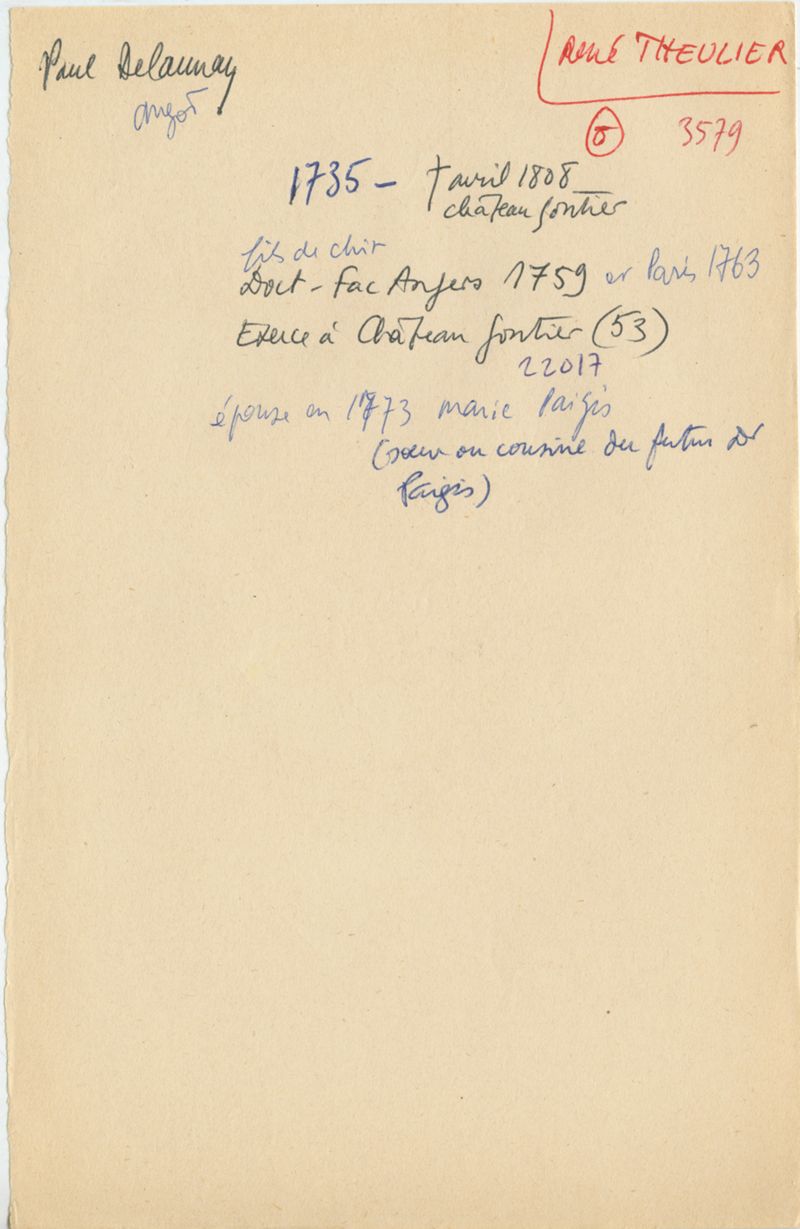 Paul Delaunay
René THEULIER
Angot
3579
1735 – † avril 1808
château gontier
fils de chir
Doct - Fac Angers 1759 et Paris 1763
Exerce à Château gontier (53)
22017
épouse en 1773 marie Paigis
(sœur ou cousine du futur Dr
Paigis)